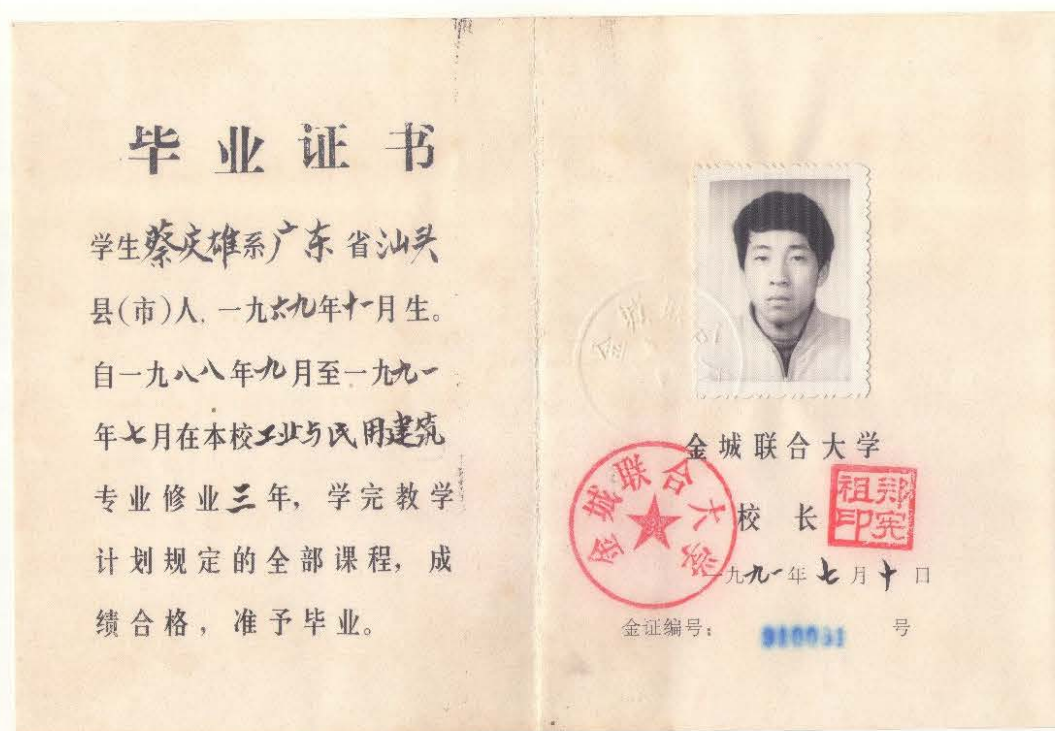 毕业证书
学生蔡庆雄系广东省汕头
县(市)人,一九六九年十一月生。
自一九八八年九月至一九九一
年七月在本校工业与民用建筑
专业修业三年,学完教学
计划规定的全部课程,成
绩合格,准予毕业。
金城联合
金城联合大学
校长
郑宪
祖印
金城联合大学
一九九一年七月十日
金证编号: 910031 号